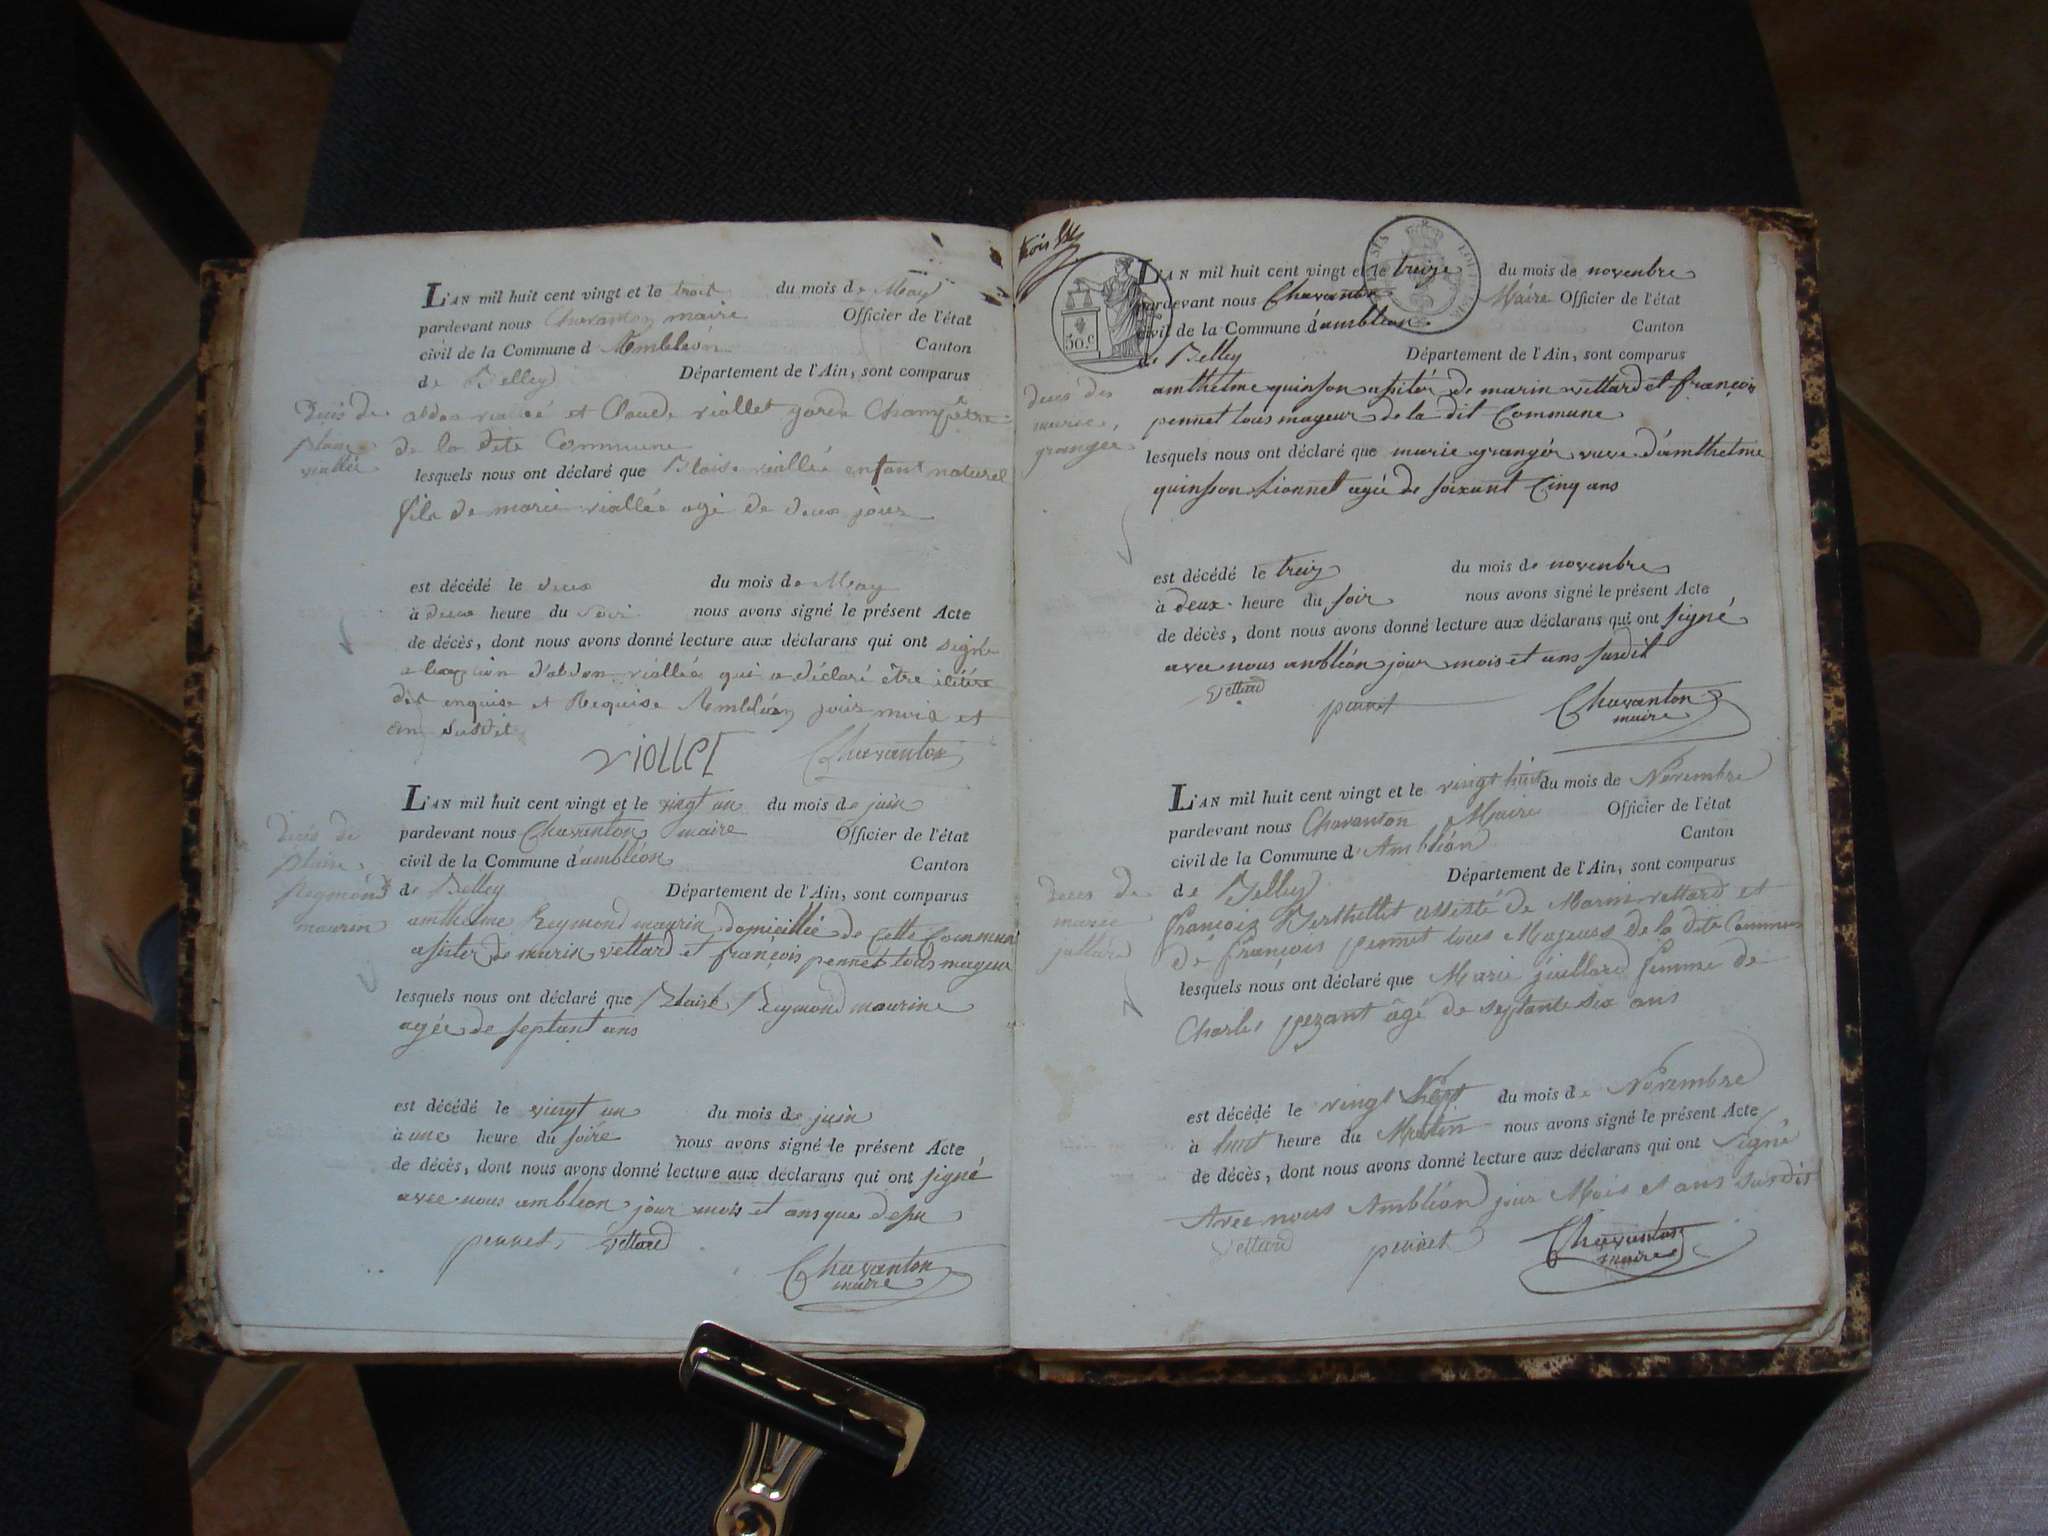 L'AN mil huit cent vingt et le trois du mois de May
pardevant nous Chavanton maire Officier de l'état
civil de la Commune d Ambléon Canton
de Belley Département de l'Ain, sont comparus
abdon viallée et Claude viollet garde Champêtre
de la dite Commune
lesquels nous ont déclaré que Blaise viallée enfant naturel
fils de marie viallée agé de deux jours
est décédé le deux du mois de May
à deux heure du soir nous avons signé le présent Acte
de décès, dont nous avons donné lecture aux déclarans qui ont signé
d'abdon viallée qui a déclaré être
de enquise et Requise Ambléon jours mois et
an susdit
viollet Chavanton
Decès de
viallée
L'AN mil huit cent vingt et le vingt un du mois de juin
pardevant nous Chavanton maire Officier de l'état
civil de la Commune d'ambléon Canton
de Belley Département de l'Ain, sont comparus
anthelme Reymond maurin domicillée de Cette Commune
asister de marin vettard et françois pennet tous mayeur
lesquels nous ont déclaré que Blaise Reymond maurine
agée de septant ans
est décédé le vingt un du mois de juin
à une heure du soire nous avons signé le présent Acte
de décès, dont nous avons donné lecture aux déclarans qui ont signé
avec nous ambléon jour mois et ans que desu
pennet vettard
Chavanton
maire
Decès de
Reymond
maurin
trois
30.c
L'AN mil huit cent vingt et le treize du mois de novenbre
pardevant nous Chavanton Maire Officier de l'état
civil de la Commune d'ambléon Canton
de Belley Département de l'Ain, sont comparus
amthelme quinson asistér de marin vettard et françois
pennet tous mayeur de la dit Commune
lesquels nous ont déclaré que marie grangér veuve d'amthelme
quinson Lionnet agée de soixant Cinq ans
est décédé le treiz du mois de novenbre
à deux heure du soir nous avons signé le présent Acte
de décès, dont nous avons donné lecture aux déclarans qui ont signé
avec nous ambléon jour mois et ans susdit
vettard pennet Chavanton
maire
decés de
marie
granger
L'AN mil huit cent vingt et le vingt huit du mois de Novembre
pardevant nous Chavanton Maire Officier de l'état
civil de la Commune d'Ambléon Canton
de Belley Département de l'Ain, sont comparus
françois Berthellet assisté de Marin vettard et
de françois pennet tous Majeurs de la dite Commune
lesquels nous ont déclaré que Marie juillard femme de
Charles pezant âgé de septante six ans
est décédé le vingt sept du mois de Novembre
à huit heure du Matin nous avons signé le présent Acte
de décès, dont nous avons donné lecture aux déclarans qui ont signé
Avec nous Ambléon jour Mois et ans susdit
vettard pennet Chavanton
maire
Deces de
marie